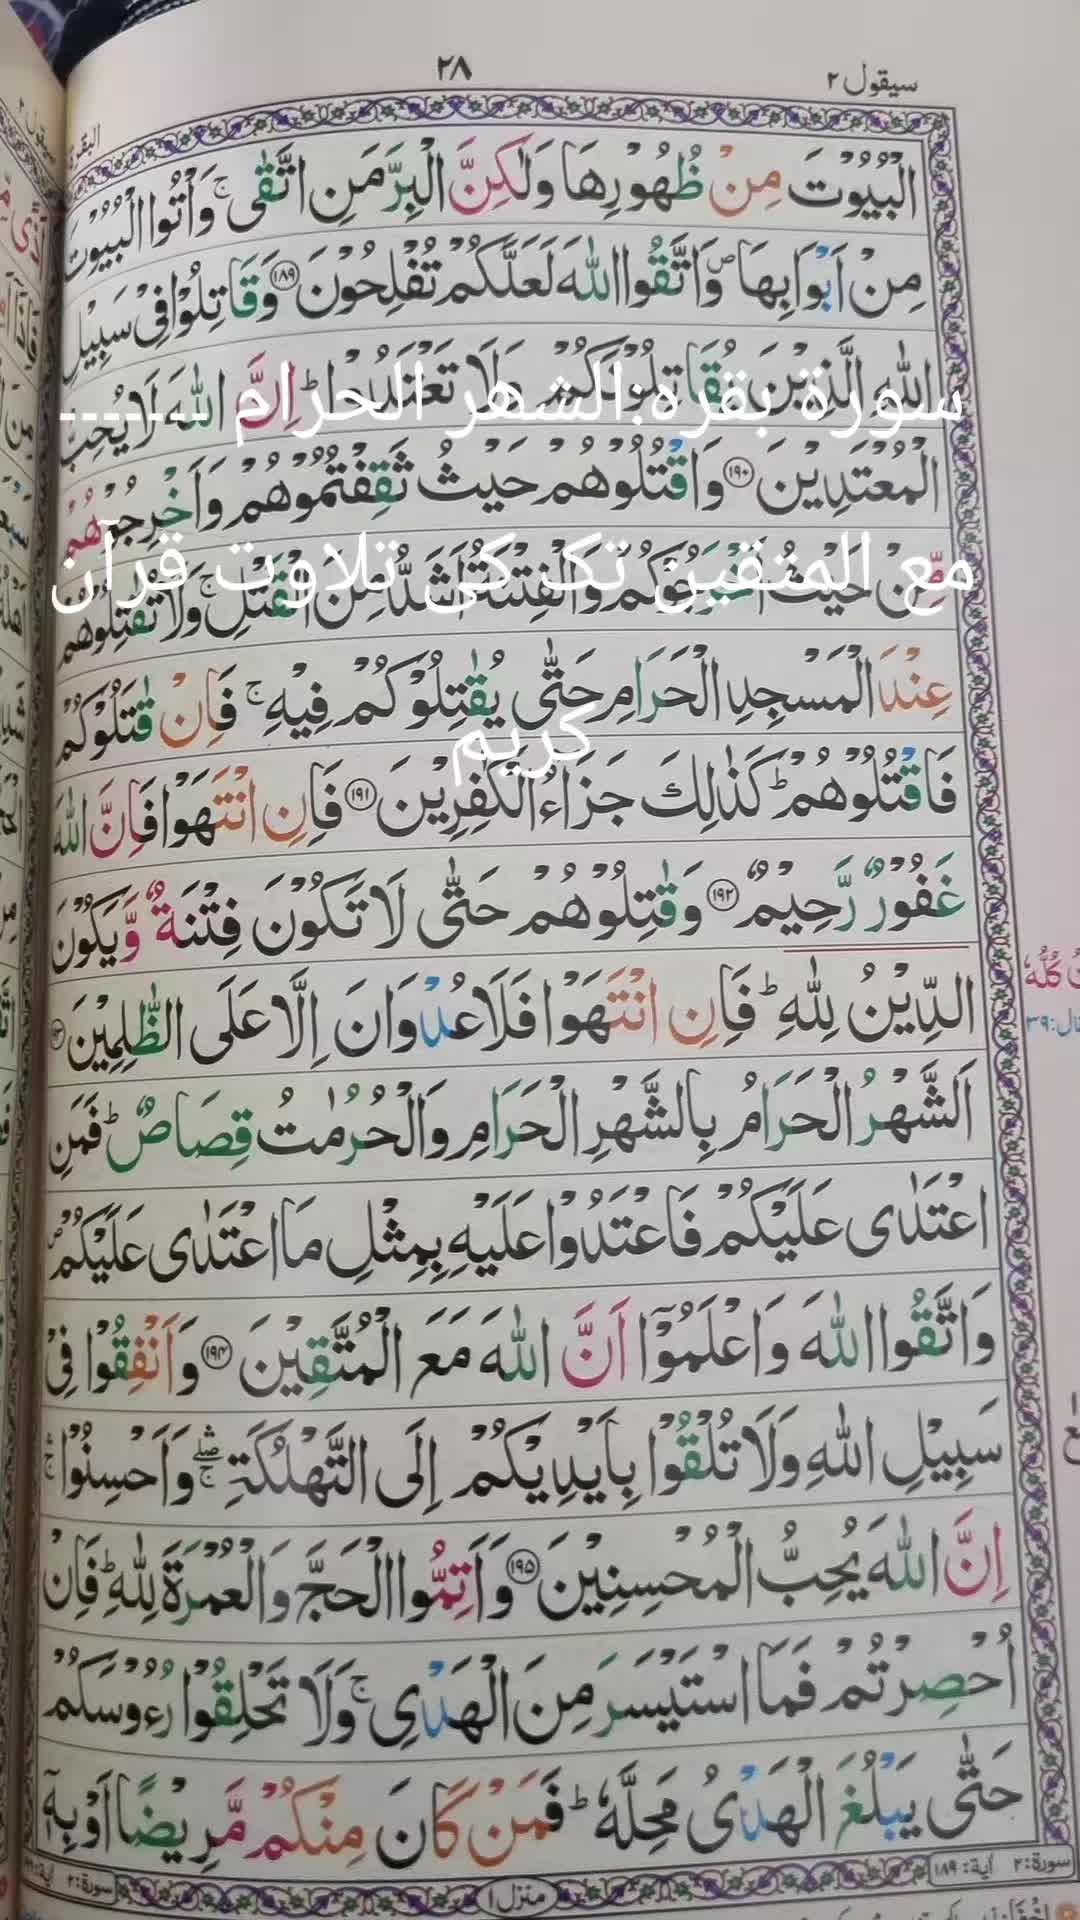 سيقول ٢
٢٨
الْبُيُوْتَ مِنْ ظُهُوْرِهَا وَلٰكِنَّ الْبِرَّ مَنِ اتَّقٰى ۚ وَاْتُوا الْبُيُوْتَ
مِنْ اَبْوَابِهَا ۪ وَاتَّقُوا اللّٰهَ لَعَلَّكُمْ تُفْلِحُوْنَ ﴿١٨٩﴾ وَقَاتِلُوْا فِيْ سَبِيْلِ
اللّٰهِ الَّذِيْنَ يُقَاتِلُوْنَكُمْ وَلَا تَعْتَدُوْا ؕ اِنَّ اللّٰهَ لَا يُحِبُّ
سورة بقره:الشهر الحرام -------
الْمُعْتَدِيْنَ ﴿١٩٠﴾ وَاقْتُلُوْهُمْ حَيْثُ ثَقِفْتُمُوْهُمْ وَاَخْرِجُوْهُمْ
مِّنْ حَيْثُ اَخْرَجُوْكُمْ وَالْفِتْنَةُ اَشَدُّ مِنَ الْقَتْلِ ۚ وَلَا تُقٰتِلُوْهُمْ
مع المتقين تک کی تلاوت قرآن
عِنْدَ الْمَسْجِدِ الْحَرَامِ حَتّٰى يُقٰتِلُوْكُمْ فِيْهِ ۚ فَاِنْ قٰتَلُوْكُمْ
کریم
فَاقْتُلُوْهُمْ ؕ كَذٰلِكَ جَزَآءُ الْكٰفِرِيْنَ ﴿١٩١﴾ فَاِنِ انْتَهَوْا فَاِنَّ اللّٰهَ
غَفُوْرٌ رَّحِيْمٌ ﴿١٩٢﴾ وَقٰتِلُوْهُمْ حَتّٰى لَا تَكُوْنَ فِتْنَةٌ وَّيَكُوْنَ
الدِّيْنُ لِلّٰهِ ؕ فَاِنِ انْتَهَوْا فَلَا عُدْوَانَ اِلَّا عَلَى الظّٰلِمِيْنَ ﴿١٩٣﴾
اَلشَّهْرُ الْحَرَامُ بِالشَّهْرِ الْحَرَامِ وَالْحُرُمٰتُ قِصَاصٌ ؕ فَمَنِ
اعْتَدٰى عَلَيْكُمْ فَاعْتَدُوْا عَلَيْهِ بِمِثْلِ مَا اعْتَدٰى عَلَيْكُمْ ۪
وَاتَّقُوا اللّٰهَ وَاعْلَمُوْٓا اَنَّ اللّٰهَ مَعَ الْمُتَّقِيْنَ ﴿١٩٤﴾ وَاَنْفِقُوْا فِيْ
سَبِيْلِ اللّٰهِ وَلَا تُلْقُوْا بِاَيْدِيْكُمْ اِلَى التَّهْلُكَةِ ۛۚ وَاَحْسِنُوْا ۛۚ
اِنَّ اللّٰهَ يُحِبُّ الْمُحْسِنِيْنَ ﴿١٩٥﴾ وَاَتِمُّوا الْحَجَّ وَالْعُمْرَةَ لِلّٰهِ ؕ فَاِنْ
اُحْصِرْتُمْ فَمَا اسْتَيْسَرَ مِنَ الْهَدْيِ ۚ وَلَا تَحْلِقُوْا رُءُوْسَكُمْ
حَتّٰى يَبْلُغَ الْهَدْيُ مَحِلَّهٗ ؕ فَمَنْ كَانَ مِنْكُمْ مَّرِيْضًا اَوْ بِهٖٓ
سورة: ٢ آية: ١٨٩
منزل ١